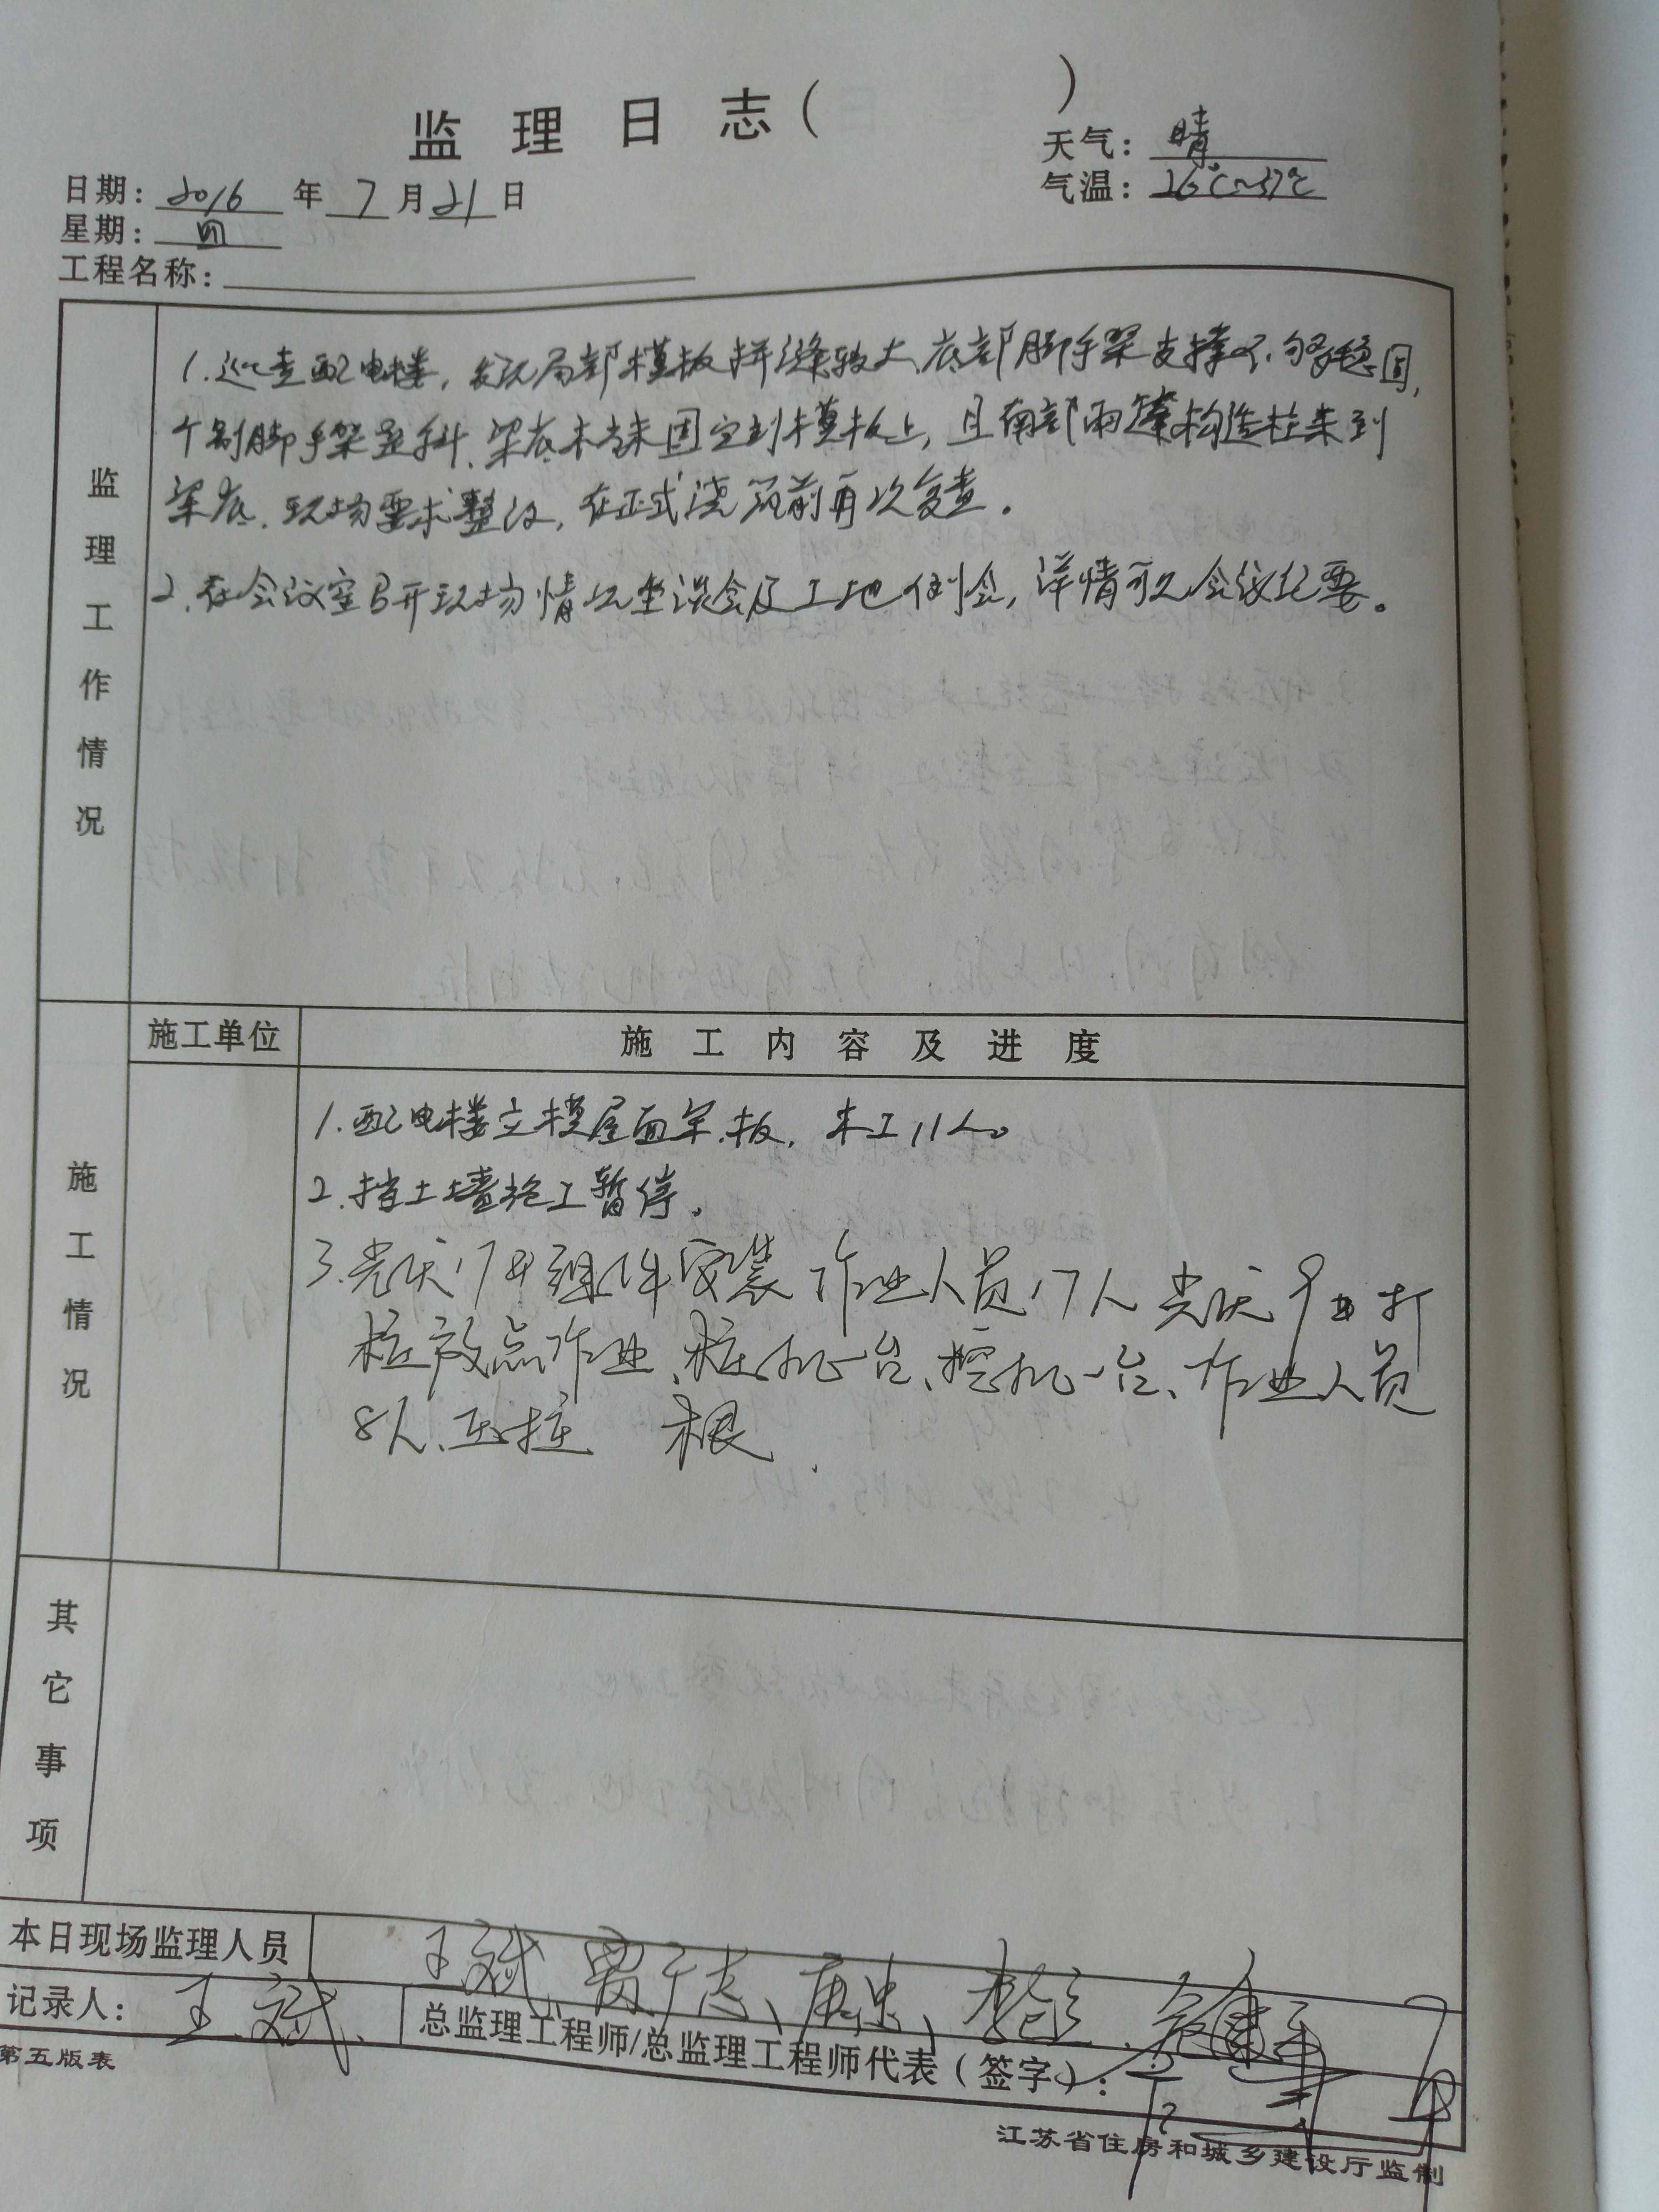 监理日志( )
天气:晴
日期:2016年7月21日
气温:26℃~37℃
星期:四
工程名称:
监理工作情况
1.巡查配电楼,发现局部模板拼缝较大、底部脚手架支撑不够稳固,
个别脚手架歪斜、梁底木档未固定到模板上,且南部雨篷构造柱未到
梁底.现场要求整改,在正式浇筑前再次复查。
2.在会议室召开现场情况座谈会及工地例会,详情可见会议纪要。
施工情况
施工单位 施工内容及进度
1.配电楼立模屋面梁.板.木工11人。
2.挡土墙施工暂停。
3.光伏17#组件安装 作业人员17人 光伏9# 打
桩放点作业、桩机一台、挖机一台、作业人员
8人、压桩 根.
其它事项
本日现场监理人员 王斌、
记录人:王斌 总监理工程师/总监理工程师代表(签字):
第五版表
江苏省住房和城乡建设厅监制